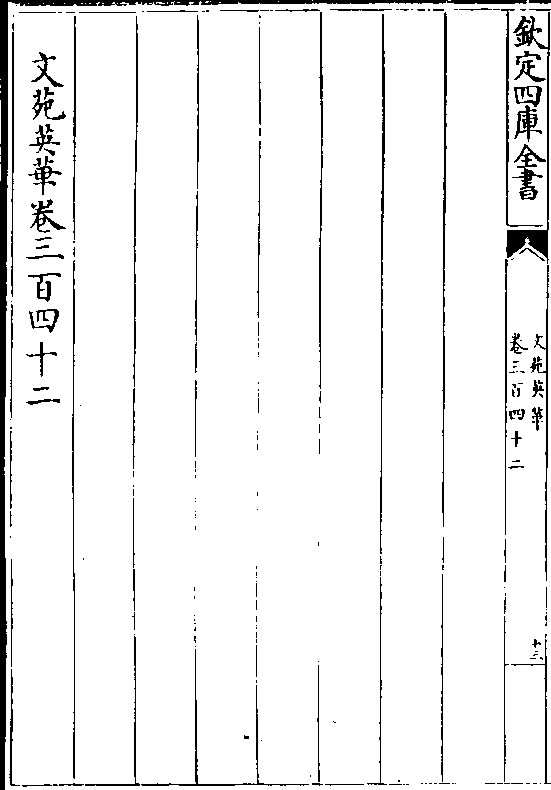 欽定四庫全書
文苑英華
卷三百四十二
十三
文苑英華卷三百四十二